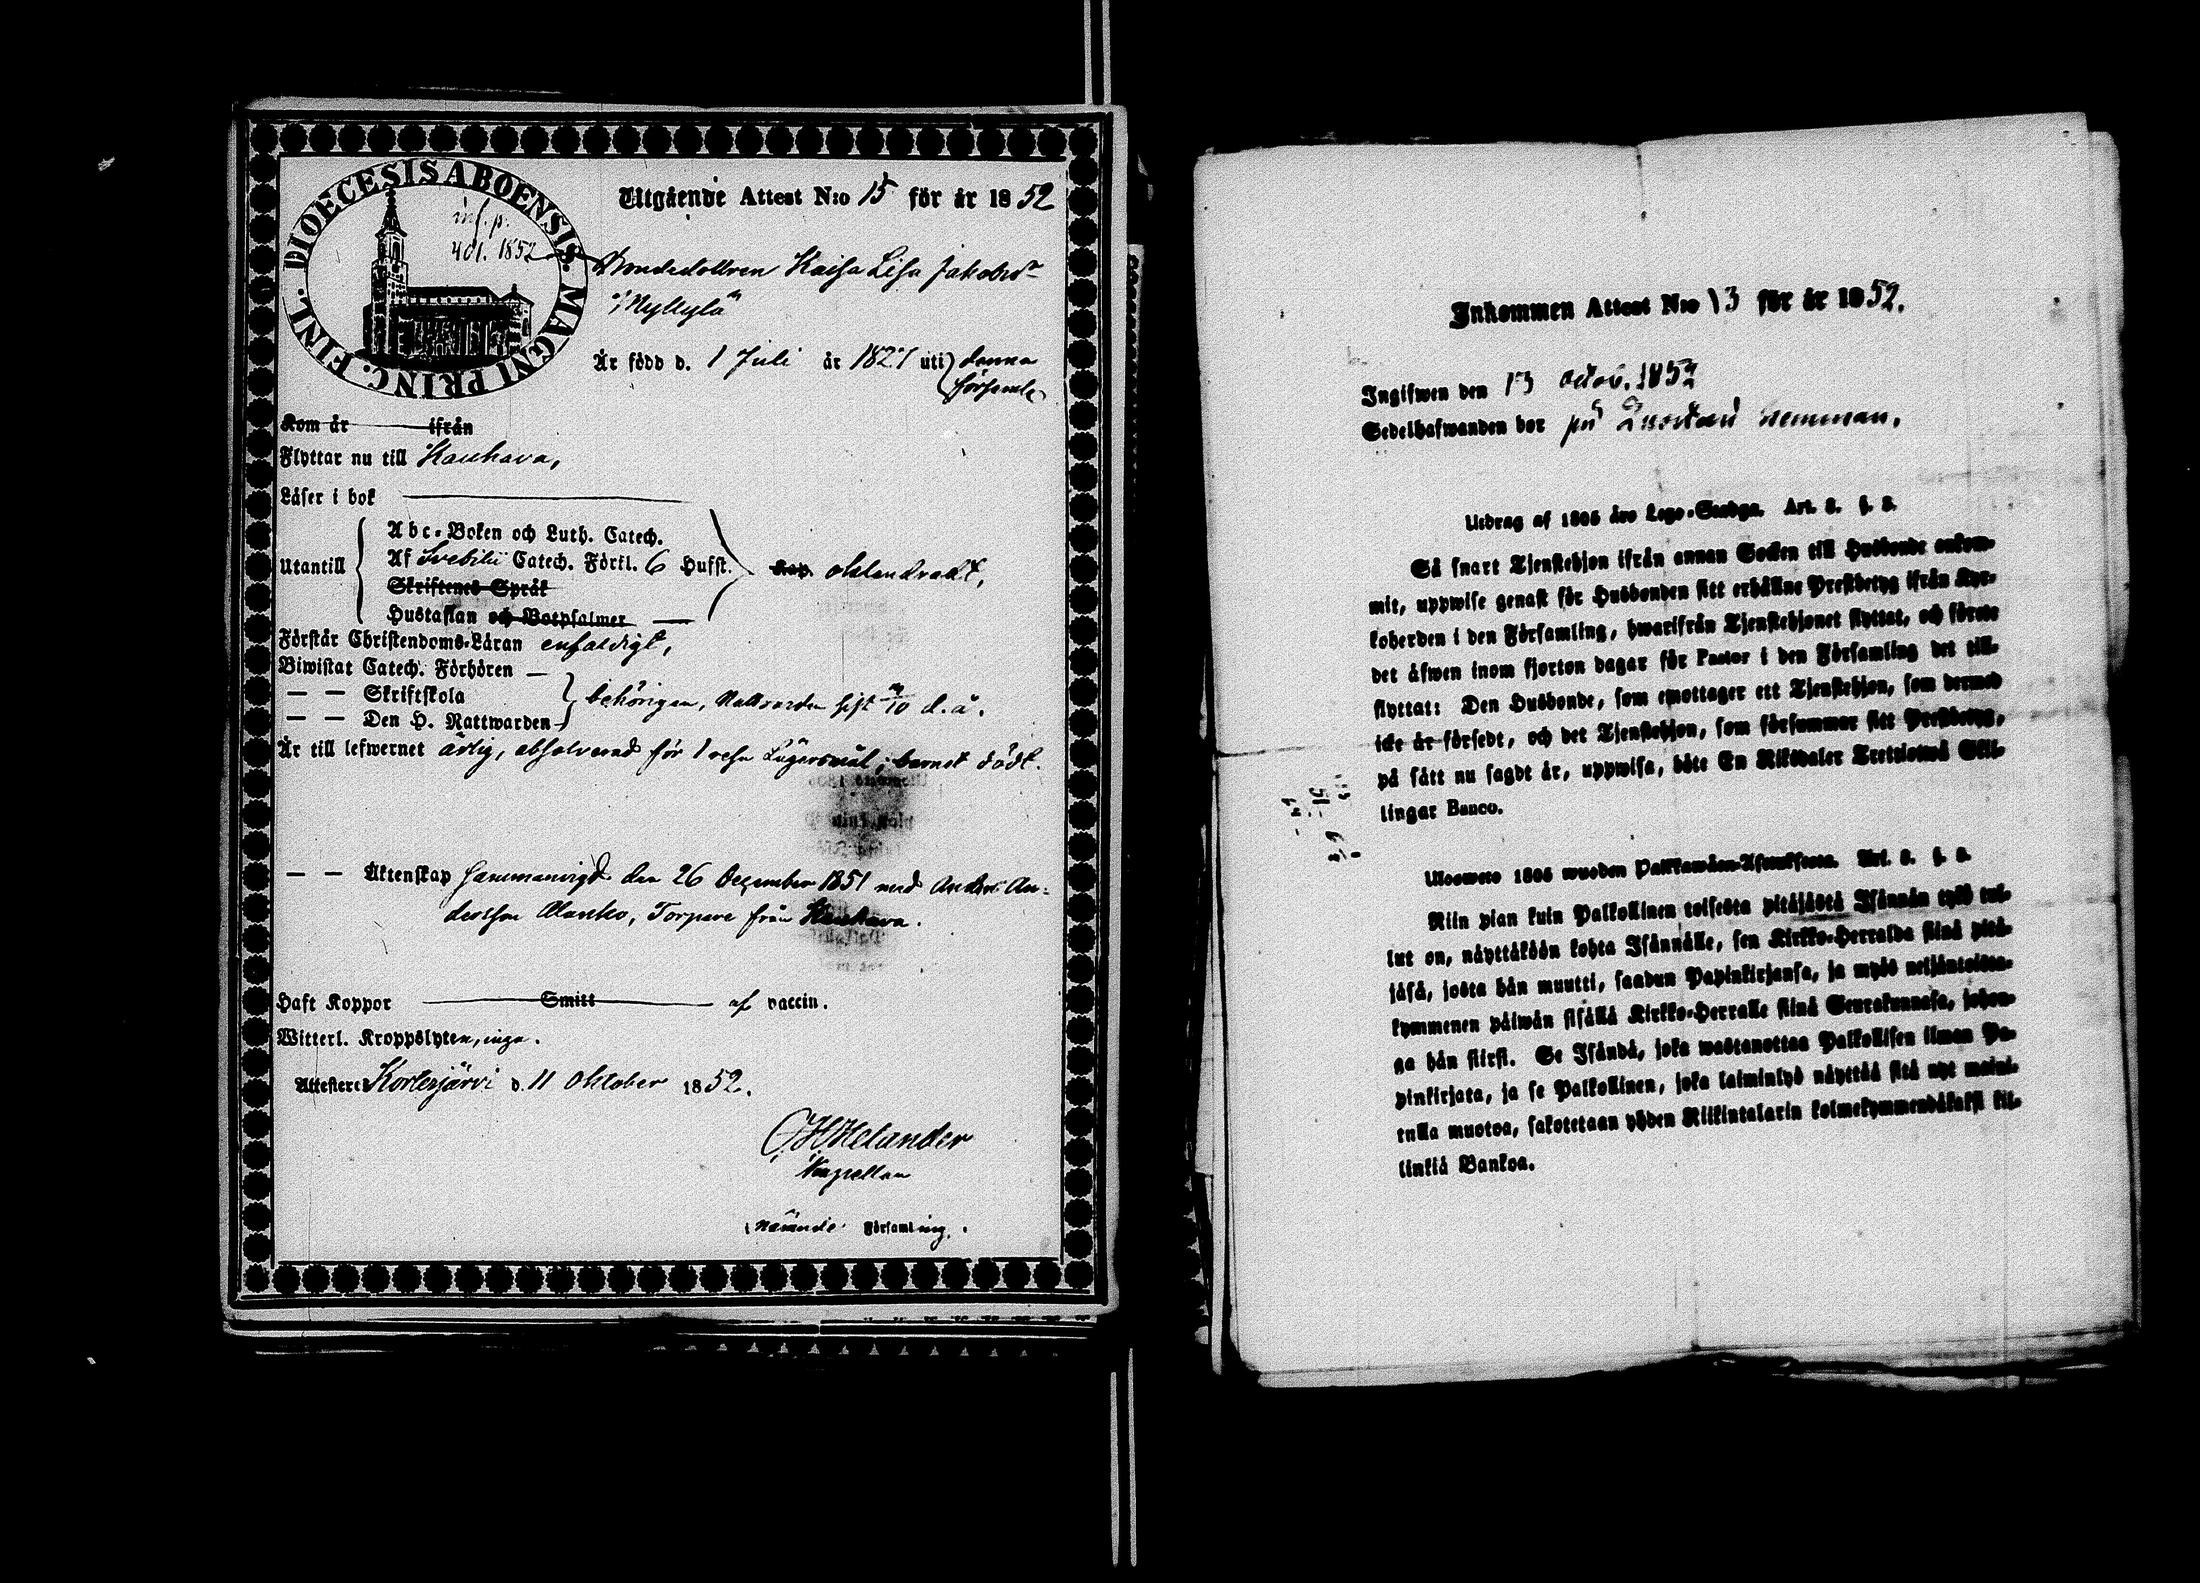 DIOECESIS ABOENSIS. MAGNI PRINC. FINL.
inf. p.
401. 1852
Utgående Attest N:o 15 för år 1852
Bondedottren Kaisa Lisa Jakobsdr
Myllylä
Är född d. 1 Juli år 1827 uti denna
församl.
Kom år ifrån
Flyttar nu till Kauhava,
Läser i bok
Abc-Boken och Luth. Catech.
Utantill Af Svebilii Catech. Förkl. 6 Hufst. Kap. oklandradt,
Skriftenes Språk
Hustaflan och Botpsalmer
Förstår Christendoms-Läran enfaldigt,
Biwistat Catech. Förhören —
— — Skriftskola behörigen, Nattvarden sist /10 d. å.
— — Den H. Nattwarden
Är till lefwernet ärlig, absolverad för 1 resa Lägersmål, barnet dödt.
— — Äktenskap Sammanvigd den 26 December 1851 med Anders An-
dersson Manko, Torpare från Kauhava.
Haft Koppor Smitt af vaccin.
Witterl. Kroppslyten, inga.
Attesterar Kortesjärvi d. 11 Oktober 1852.
Helander
Kapellan
Församling.
Inkommen Attest N:o 13 för år 1852.
Ingifwen den 13 Octob. 1852
Sedelhafwanden bor på hemman.
Utdrag af 1805 års Lego-Stadga. Art. 3. §. 8.
Så snart Tjenstehjon ifrån annan Socken till Husbonde ankom-
mit, uppwise genast för Husbonden sitt erhållne Prestbetyg ifrån Kyr-
koherden i den Församling, hwarifrån Tjenstehjonet flyttat, och förete
det äfwen inom fjorton dagar för Pastor i den Församling det till-
flyttat: Den Husbonde, som emottager ett Tjenstehjon, som dermed
icke är försedt, och det Tjenstehjon, som försummar sitt Prestbetyg,
på sätt nu sagdt är, uppwisa, böte En Riksdaler Trettiotwå Skil-
lingar Banco.
Ulosweto 1805 wuoden Palkkawäen-Asetuksesta. Art. 3. §. 8.
Niin pian kuin Palkollinen toisesta pitäjästä Isännän tykö tul-
lut on, näyttäköön kohta Isännälle, sen Kirkko-Herralda siinä pitä-
jäsä, josta hän muutti, saadun Papinkirjansa, ja myös neljäntoista-
kymmenen päiwän sisällä Kirkko-Herralle siinä Seurakunnasa, johon-
ga hän siirsi. Se Isändä, joka wastanottaa Palkollisen ilman Pa-
pinkirjata, ja se Palkollinen, joka laiminlyö näyttää sitä nyt maini-
tulla muotoa, sakotetaan yhden Riikintalarin kolmekymmendäkaksi kil-
linkiä Bankoa.